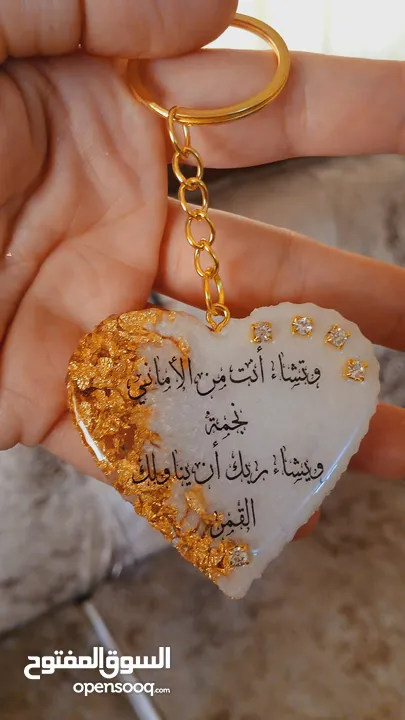 وتشاء أنت من الأماني
نجمة
ويشاء ربك أن يناولك
القمر
السوق المفتوح
opensooq.com